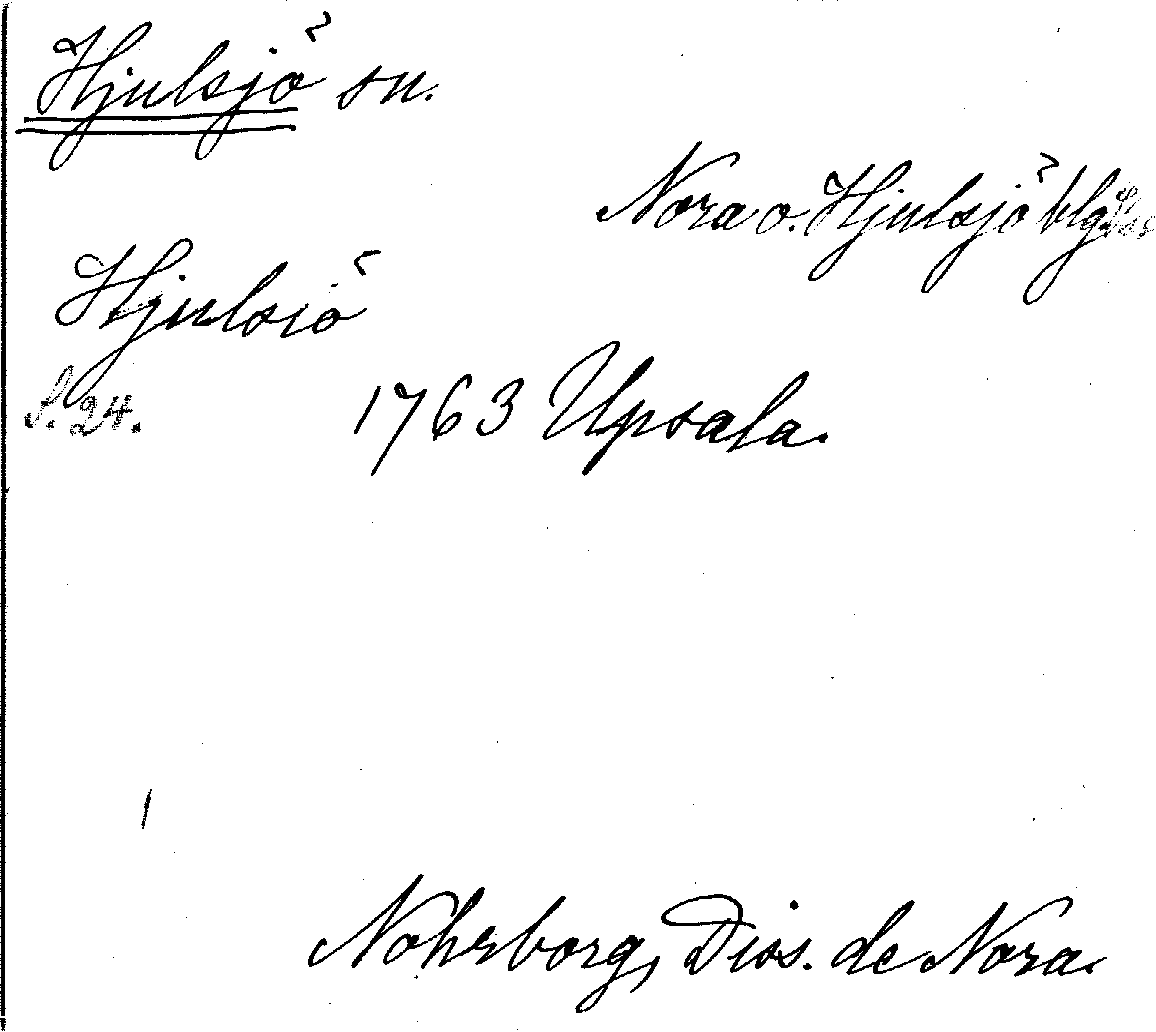 Hjulsjö sn.
Nora o. Hjulsjö blg
Hjulsiö
S. 24.
1763 Upsala.
Nohrborg, Diss. de Nora.